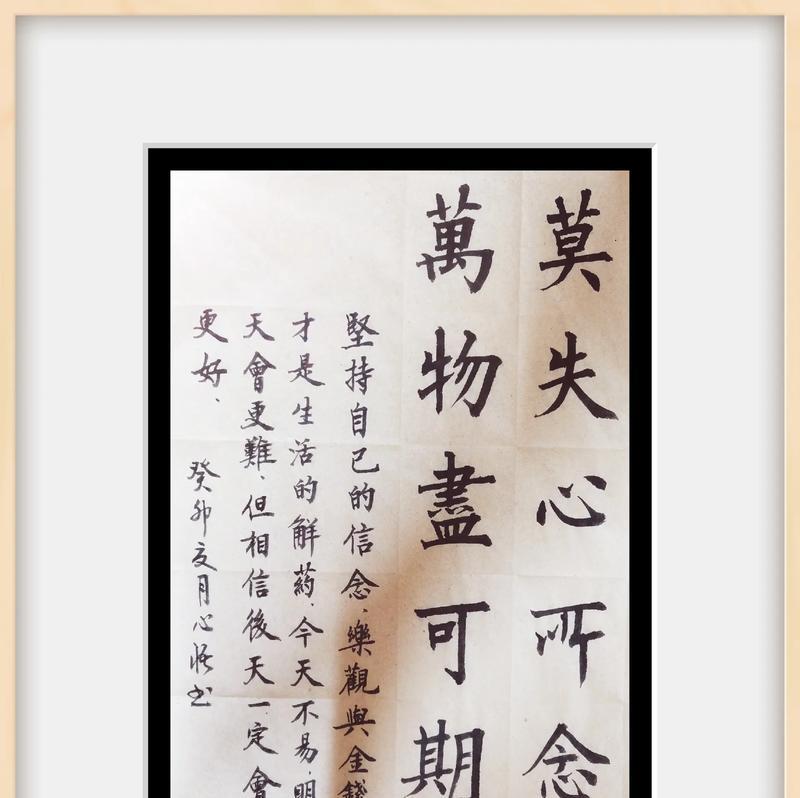 莫失心所念
萬物盡可期
堅持自己的信念、樂觀與金錢
才是生活的解药、今天不易、明
天會更難、但相信後天一定會
更好、
癸卯
月心
书